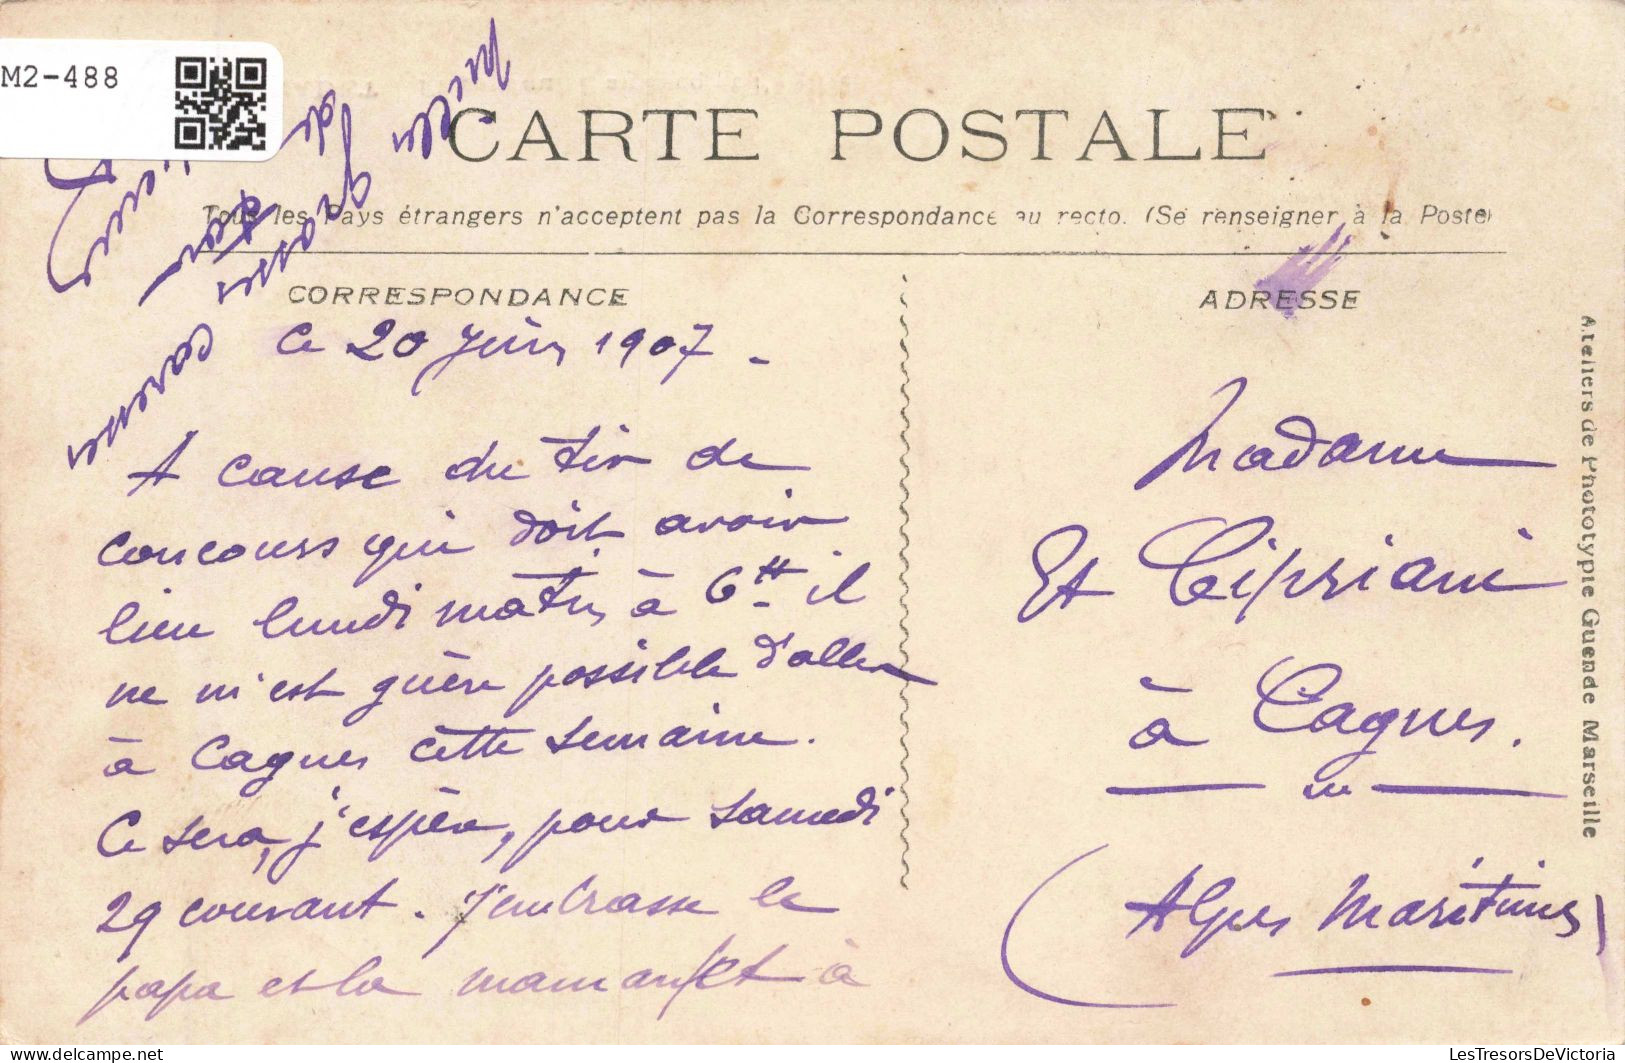 M2-488
CARTE POSTALE
Tous les Pays étrangers n'acceptent pas la Correspondance au recto. (Se renseigner à la Poste)
CORRESPONDANCE
ADRESSE
Ce 20 Juin 1907 -
A cause du tir de
concours qui doit avoir
lieu lundi matin à 6 il
ne m'est guère possible d'aller
à Cagnes cette semaine.
Ce sera, j'espère, pour samedi
29 courant. J'embrasse le
papa et la maman et à
grosses caresses
de
Madame
Cipriani
à Cagnes.
(Alpes Maritimes)
Ateliers de Phototypie Guende Marseille
LesTresorsDeVictoria